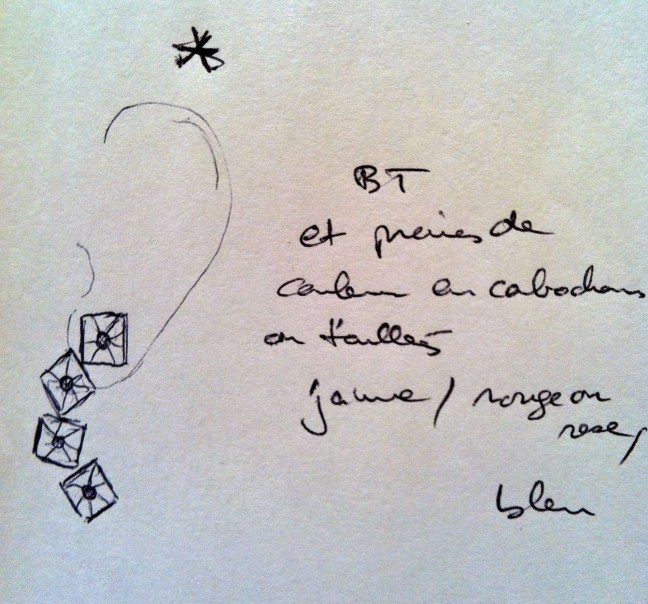 BT
et pierres de
couleur en cabochons
ou taillées
jaune / rouge ou
rose,
bleu